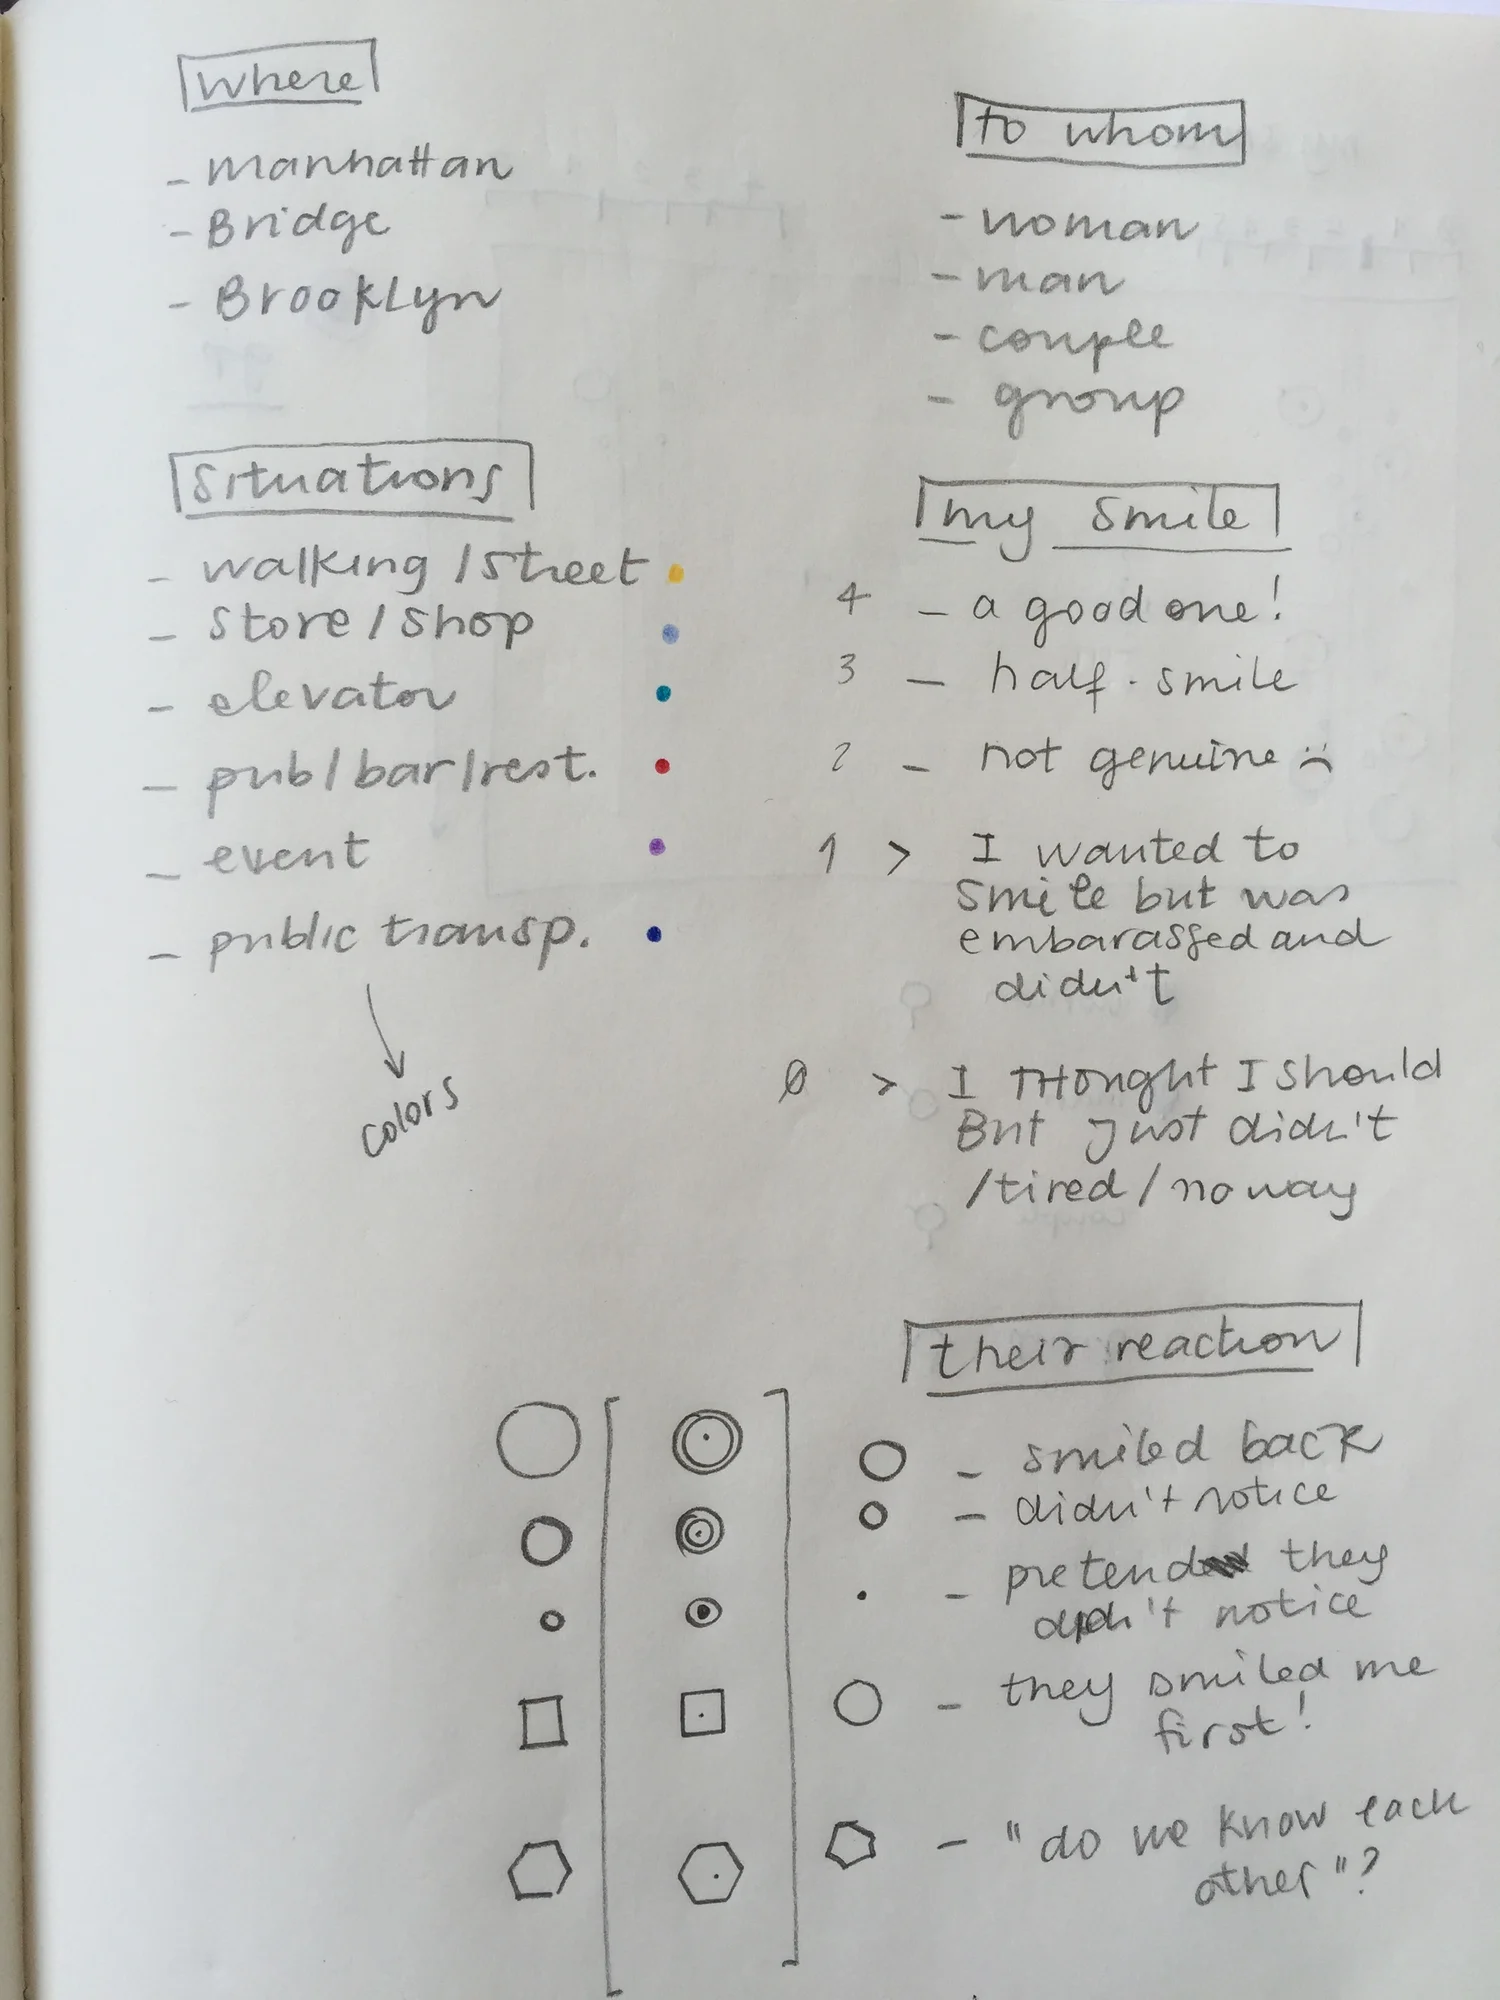 where
- manhattan
- Bridge
- Brooklyn
situations
- walking / street
- store / shop
- elevator
- pub / bar / rest.
- event
- public transp.
colors
to whom
- woman
- man
- couple
- group
my smile
4 - a good one!
3 - half-smile
2 - not genuine :(
1 > I wanted to
smile but was
embarassed and
didn't
0 > I THought I should
But just didn't
/ tired / no way
their reaction
- smiled back
- didn't notice
- pretend they
didn't notice
- they smiled me
first!
- "do we know each
other"?